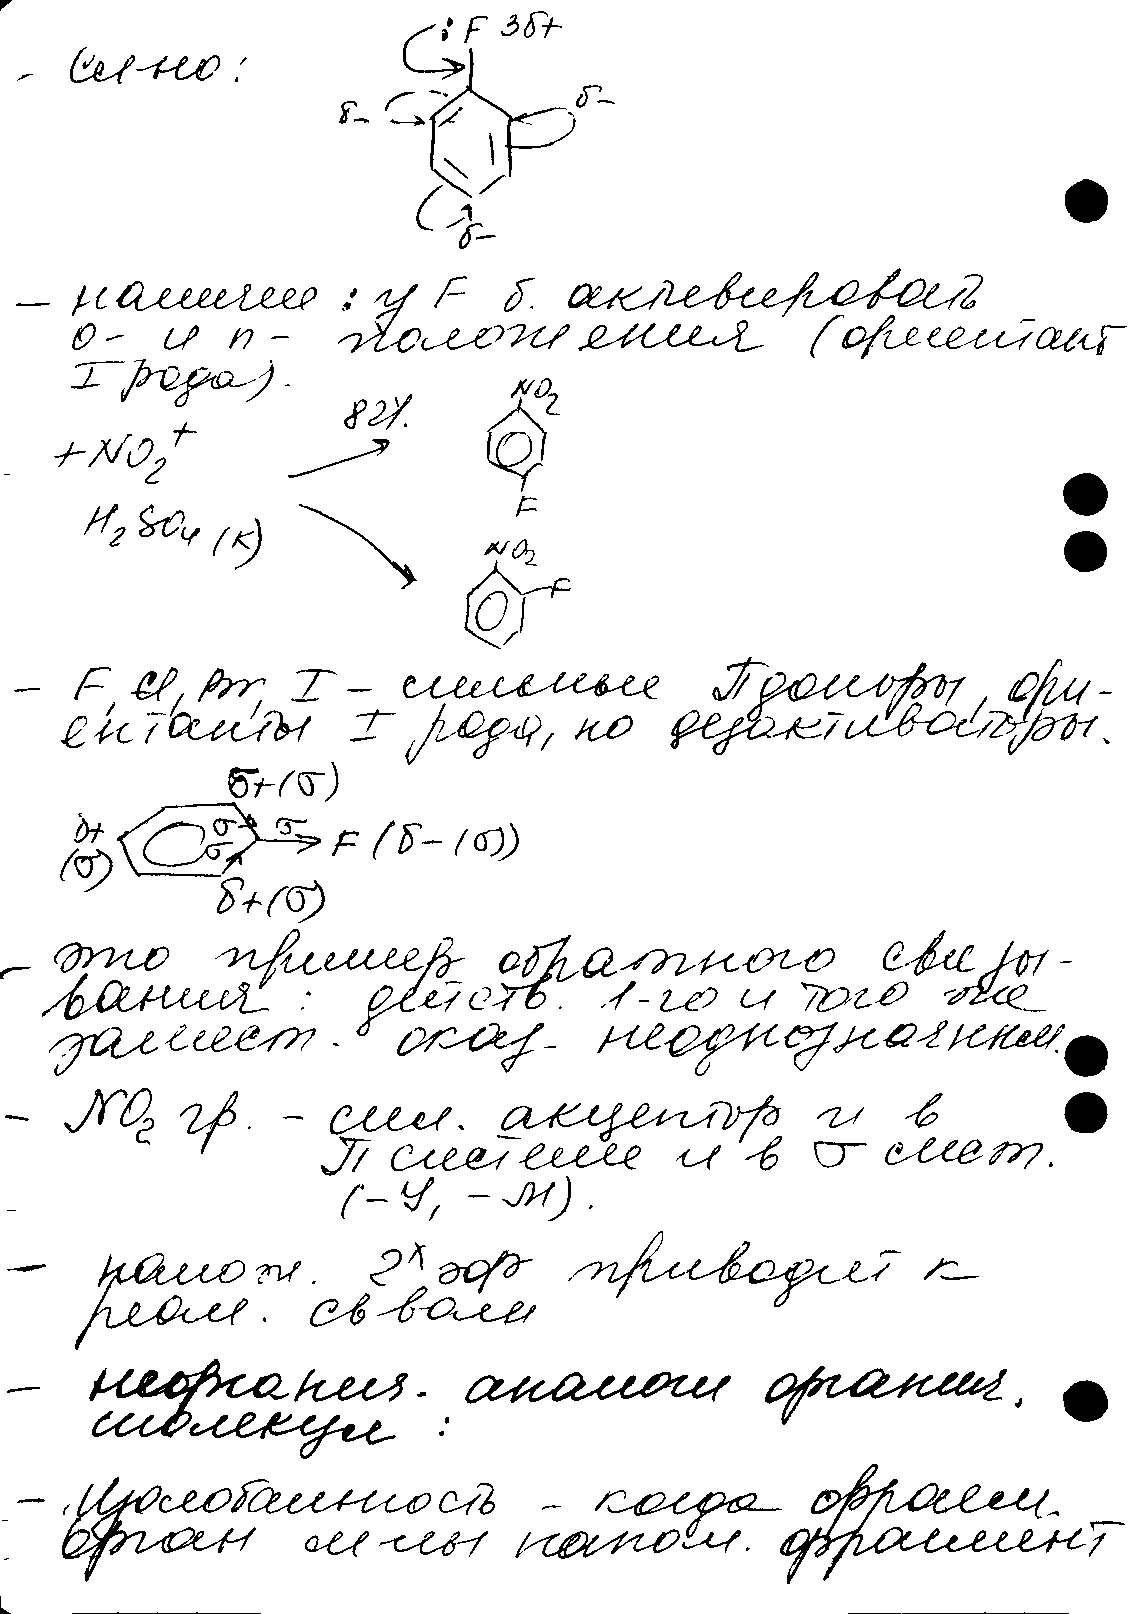 :F 3δ+
δ-
δ-
δ-
- наличие : у F б. активировать
о- и п- положения (ориентант
I рода).
82%
NO₂
+NO₂⁺
F
H₂SO₄ (к)
NO₂
F
- F, Cl, Br, I - сильные П доноры, ори-
ентанты I рода, но дезактиваторы.
δ+(σ)
δ+
(σ)
σ
σ
σ
F (δ-(σ))
δ+(σ)
- это пример обратного связы-
вания : действ. 1-го и того же
замест. оказ. неоднозначным.
- NO₂ гр. - сил. акцептор и в
П системе и в σ сист.
(-У, -М).
- налож. 2ˣ эфф приводит к
реал. св-вам
- неорганич. аналоги органич.
молекул :
- Изолобальность - когда фрагм.
орган м-лы напом. фрагмент